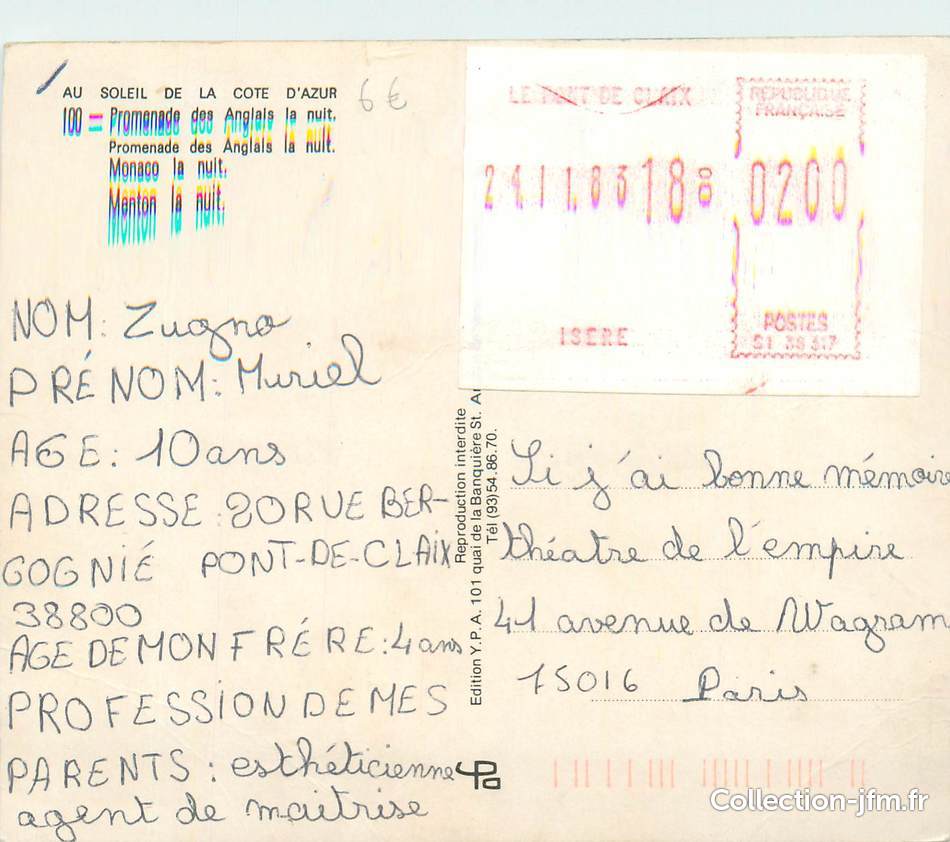 AU SOLEIL DE LA COTE D'AZUR
6€
100 = Promenade des Anglais la nuit.
Promenade des Anglais la nuit.
Monaco la nuit.
Menton la nuit.
LE PONT DE CLAIX
REPUBLIQUE
FRANÇAISE
24.11.83 18 00
0200
ISERE
POSTES
NOM: Zugno
PRÉNOM: Muriel
AGE: 10 ans
ADRESSE: 20 RUE BER-
GOGNIÉ PONT-DE-CLAIX
38800
AGE DE MON FRÉRE: 4 ans
PROFESSION DE MES
PARENTS: esthéticienne
agent de maitrise
Edition Y.P.A. 101 quai de la Banquière St. A
Reproduction interdite
Tél (93)54.86.70.
Si j'ai bonne mémoire
théatre de l'empire
41 avenue de Wagram
75016 Paris
Collection-jfm.fr